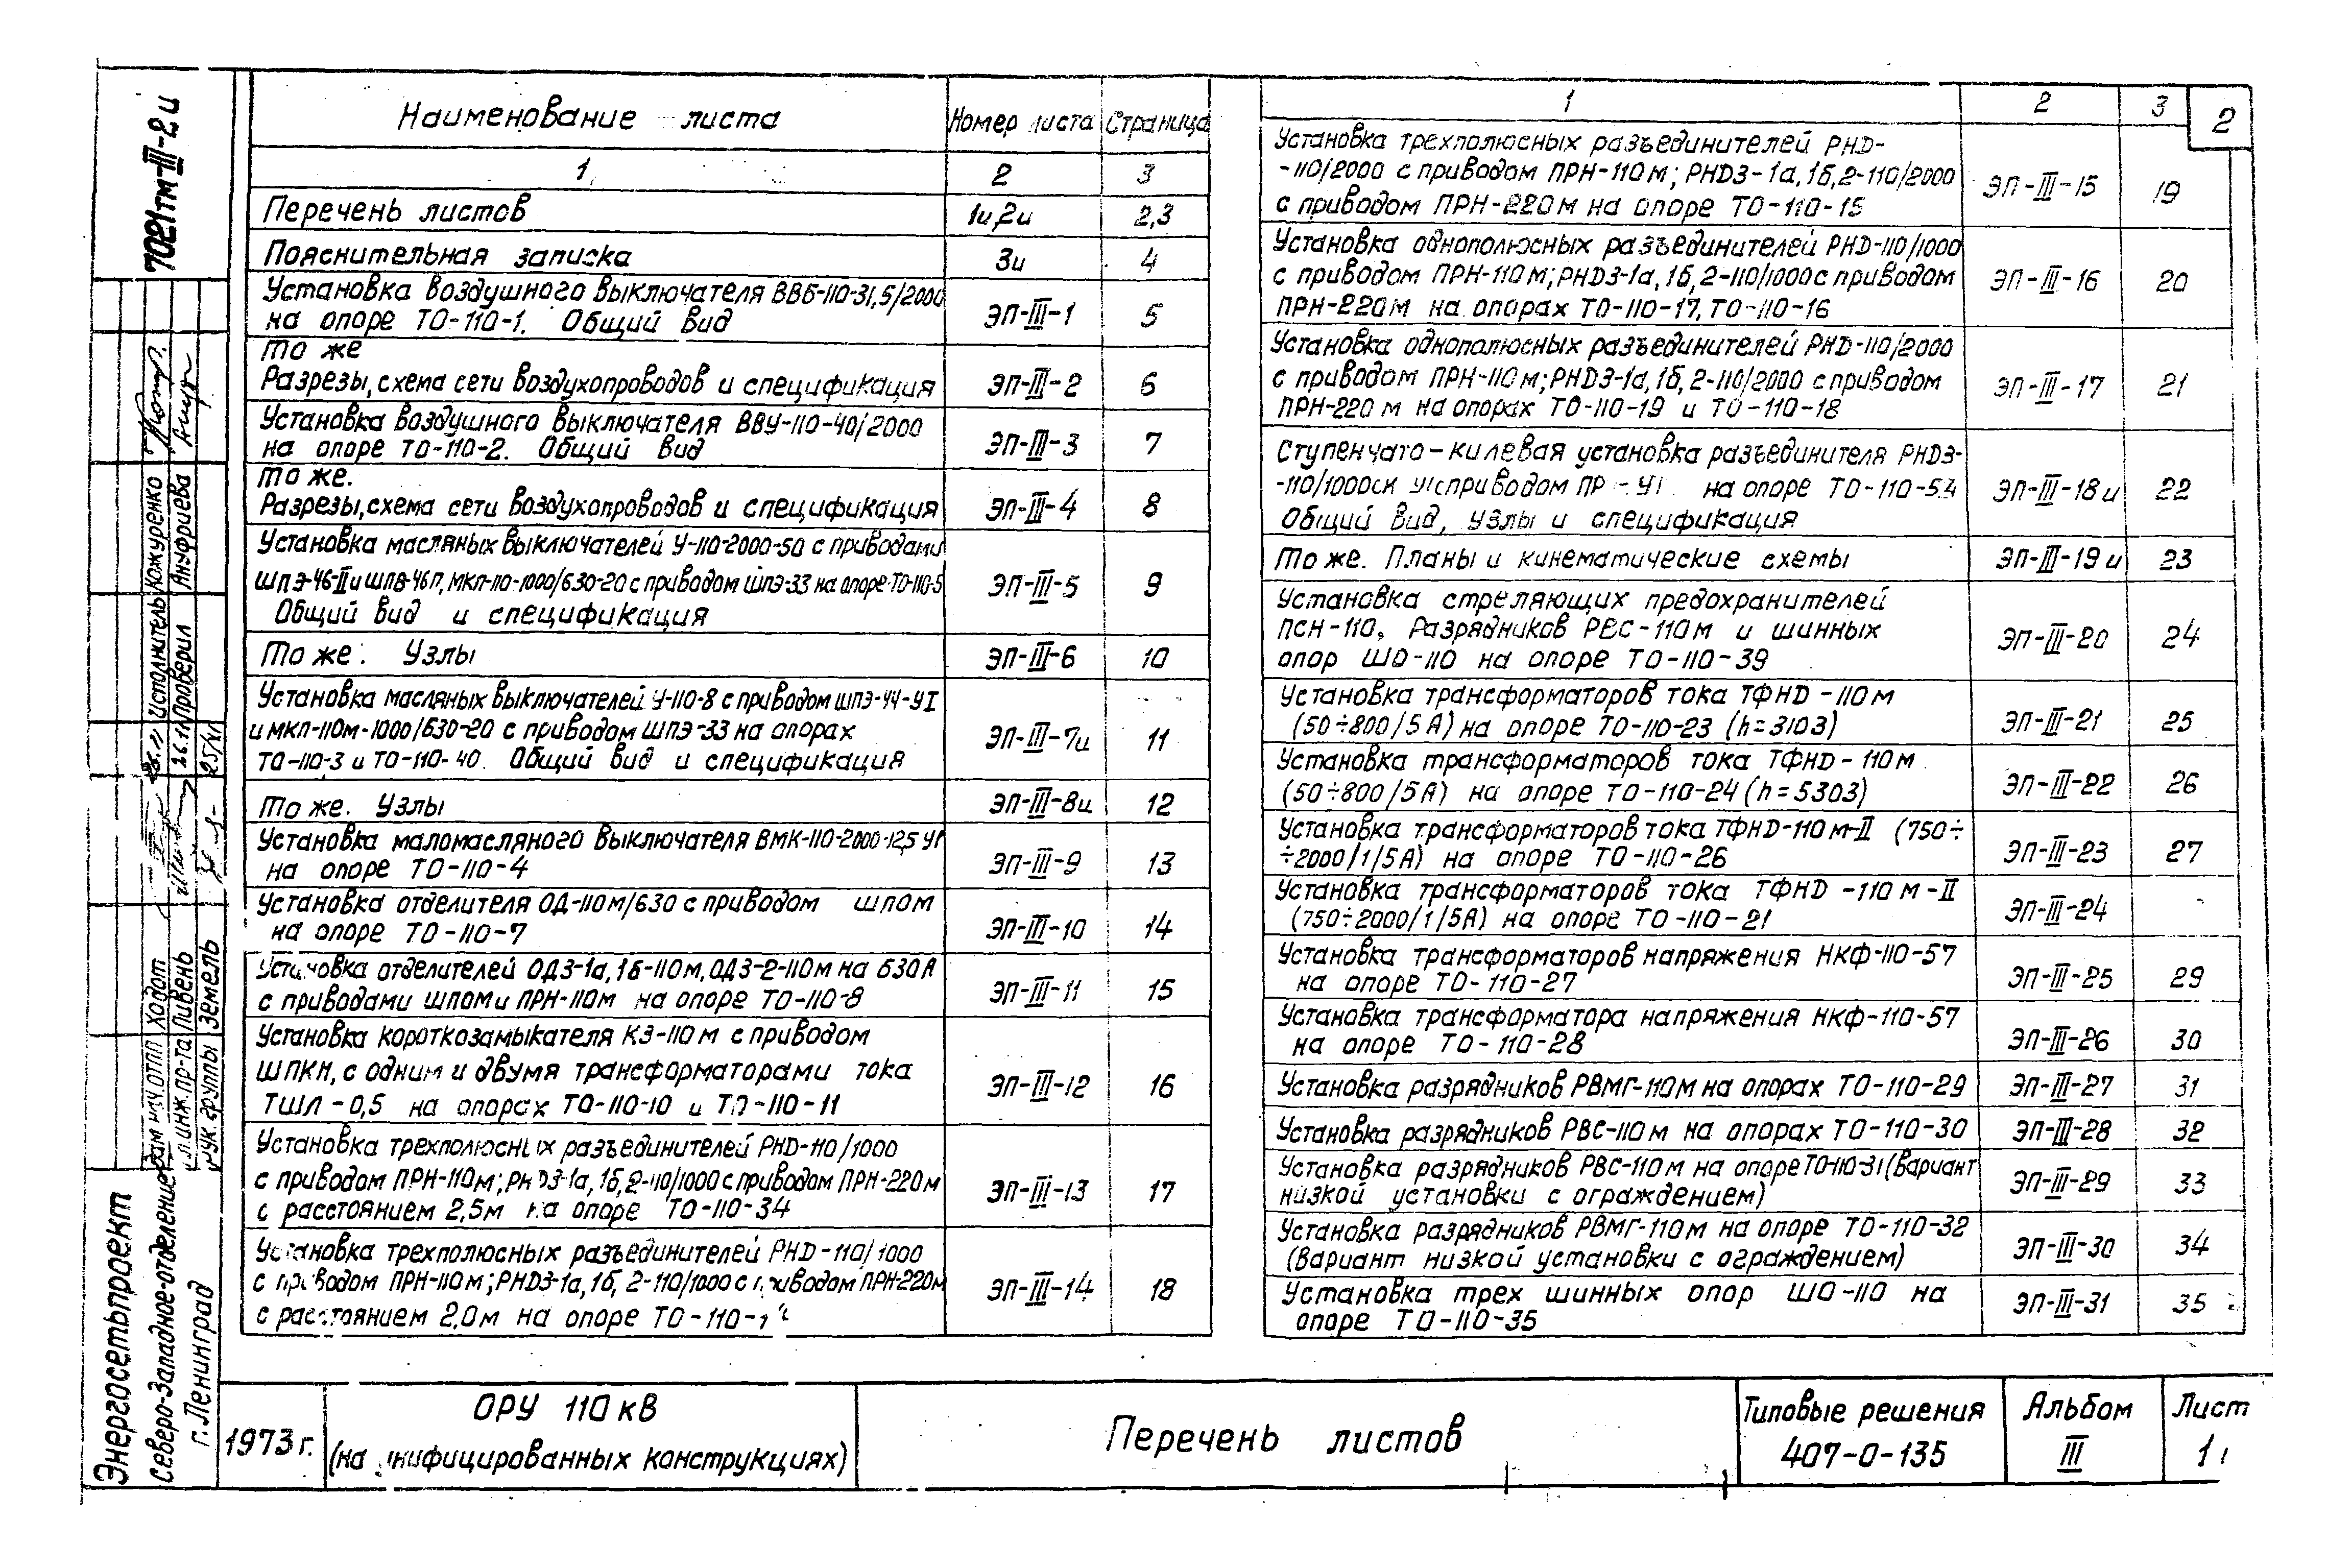 Наименование листа
Номер листа
Страница
1
2
3
Перечень листов
1и,2и
2,3
Пояснительная записка
3и
4
Установка воздушного выключателя ВВБ-110-31,5/2000
на опоре ТО-110-1. Общий вид
ЭП-III-1
5
То же
Разрезы, схема сети воздухопроводов и спецификация
ЭП-III-2
6
Установка воздушного выключателя ВВУ-110-40/2000
на опоре ТО-110-2. Общий вид
ЭП-III-3
7
То же.
Разрезы, схема сети воздухопроводов и спецификация
ЭП-III-4
8
Установка масляных выключателей У-110-2000-50 с приводами
ШПЭ-46-II и ШПВ-46П, МКП-110-1000/630-20 с приводом ШПЭ-33 на опоре ТО-110-5
Общий вид и спецификация
ЭП-III-5
9
То же. Узлы
ЭП-III-6
10
Установка масляных выключателей У-110-8 с приводом ШПЭ-44-УI
и МКП-110м-1000/630-20 с приводом ШПЭ-33 на опорах
ТО-110-3 и ТО-110-40. Общий вид и спецификация
ЭП-III-7и
11
То же. Узлы
ЭП-III-8и
12
Установка маломасляного выключателя ВМК-110-2000-12,5 У1
на опоре ТО-110-4
ЭП-III-9
13
Установка отделителя ОД-110м/630 с приводом ШПОМ
на опоре ТО-110-7
ЭП-III-10
14
Установка отделителей ОДЗ-1а, 1б-110м, ОДЗ-2-110м на 630А
с приводами ШПОМ и ПРН-110м на опоре ТО-110-8
ЭП-III-11
15
Установка короткозамыкателя КЗ-110м с приводом
ШПКН, с одним и двумя трансформаторами тока
ТШЛ-0,5 на опорах ТО-110-10 и ТО-110-11
ЭП-III-12
16
Установка трехполюсных разъединителей РНД-110/1000
с приводом ПРН-110м; РНДЗ-1а, 1б, 2-110/1000 с приводом ПРН-220м
с расстоянием 2,5м на опоре ТО-110-34
ЭП-III-13
17
Установка трехполюсных разъединителей РНД-110/1000
с приводом ПРН-110м; РНДЗ-1а, 1б, 2-110/1000 с приводом ПРН-220м
с расстоянием 2,0м на опоре
ЭП-III-14
18
1
2
3
2
Установка трехполюсных разъединителей РНД-
-110/2000 с приводом ПРН-110м; РНДЗ-1а, 1б, 2-110/2000
с приводом ПРН-220м на опоре ТО-110-15
ЭП-III-15
19
Установка однополюсных разъединителей РНД-110/1000
с приводом ПРН-110м; РНДЗ-1а, 1б, 2-110/1000 с приводом
ПРН-220м на опорах ТО-110-17, ТО-110-16
ЭП-III-16
20
Установка однополюсных разъединителей РНД-110/2000
с приводом ПРН-110м; РНДЗ-1а, 1б, 2-110/2000 с приводом
ПРН-220м на опорах ТО-110-19 и ТО-110-18
ЭП-III-17
21
Ступенчато-килевая установка разъединителя РНДЗ-
на опоре ТО-110-54
Общий вид, узлы и спецификация
ЭП-III-18и
22
То же. Планы и кинематические схемы
ЭП-III-19и
23
Установка стреляющих предохранителей
ПСН-110, Разрядников РВС-110м и шинных
опор ШО-110 на опоре ТО-110-39
ЭП-III-20
24
Установка трансформаторов тока ТФНД-110м
(50÷800/5А) на опоре ТО-110-23 (h=3103)
ЭП-III-21
25
Установка трансформаторов тока ТФНД-110м
(50÷800/5А) на опоре ТО-110-24 (h=5303)
ЭП-III-22
26
Установка трансформаторов тока ТФНД-110м-II (750÷
÷2000/1/5А) на опоре ТО-110-26
ЭП-III-23
27
Установка трансформаторов тока ТФНД-110м-II
(750÷2000/1/5А) на опоре ТО-110-21
ЭП-III-24
Установка трансформаторов напряжения НКФ-110-57
на опоре ТО-110-27
ЭП-III-25
29
Установка трансформатора напряжения НКФ-110-57
на опоре ТО-110-28
ЭП-III-26
30
Установка разрядников РВМГ-110м на опорах ТО-110-29
ЭП-III-27
31
Установка разрядников РВС-110м на опорах ТО-110-30
ЭП-III-28
32
Установка разрядников РВС-110м на опоре ТО-110-31 (вариант
низкой установки с ограждением)
ЭП-III-29
33
Установка разрядников РВМГ-110м на опоре ТО-110-32
(вариант низкой установки с ограждением)
ЭП-III-30
34
Установка трех шинных опор ШО-110 на
опоре ТО-110-35
ЭП-III-31
35
7021тм-III-2и
Исполнитель Кожуренко
Проверил Ануфриева
26.11
25/XI
Ходот
Гл.инж.пр-та Ливень
Рук.группы Земель
Энергосетьпроект
Северо-Западное отделение
г. Ленинград
1973г.
ОРУ 110 кВ
(на унифицированных конструкциях)
Перечень листов
Типовые решения
407-0-135
Альбом
III
Лист